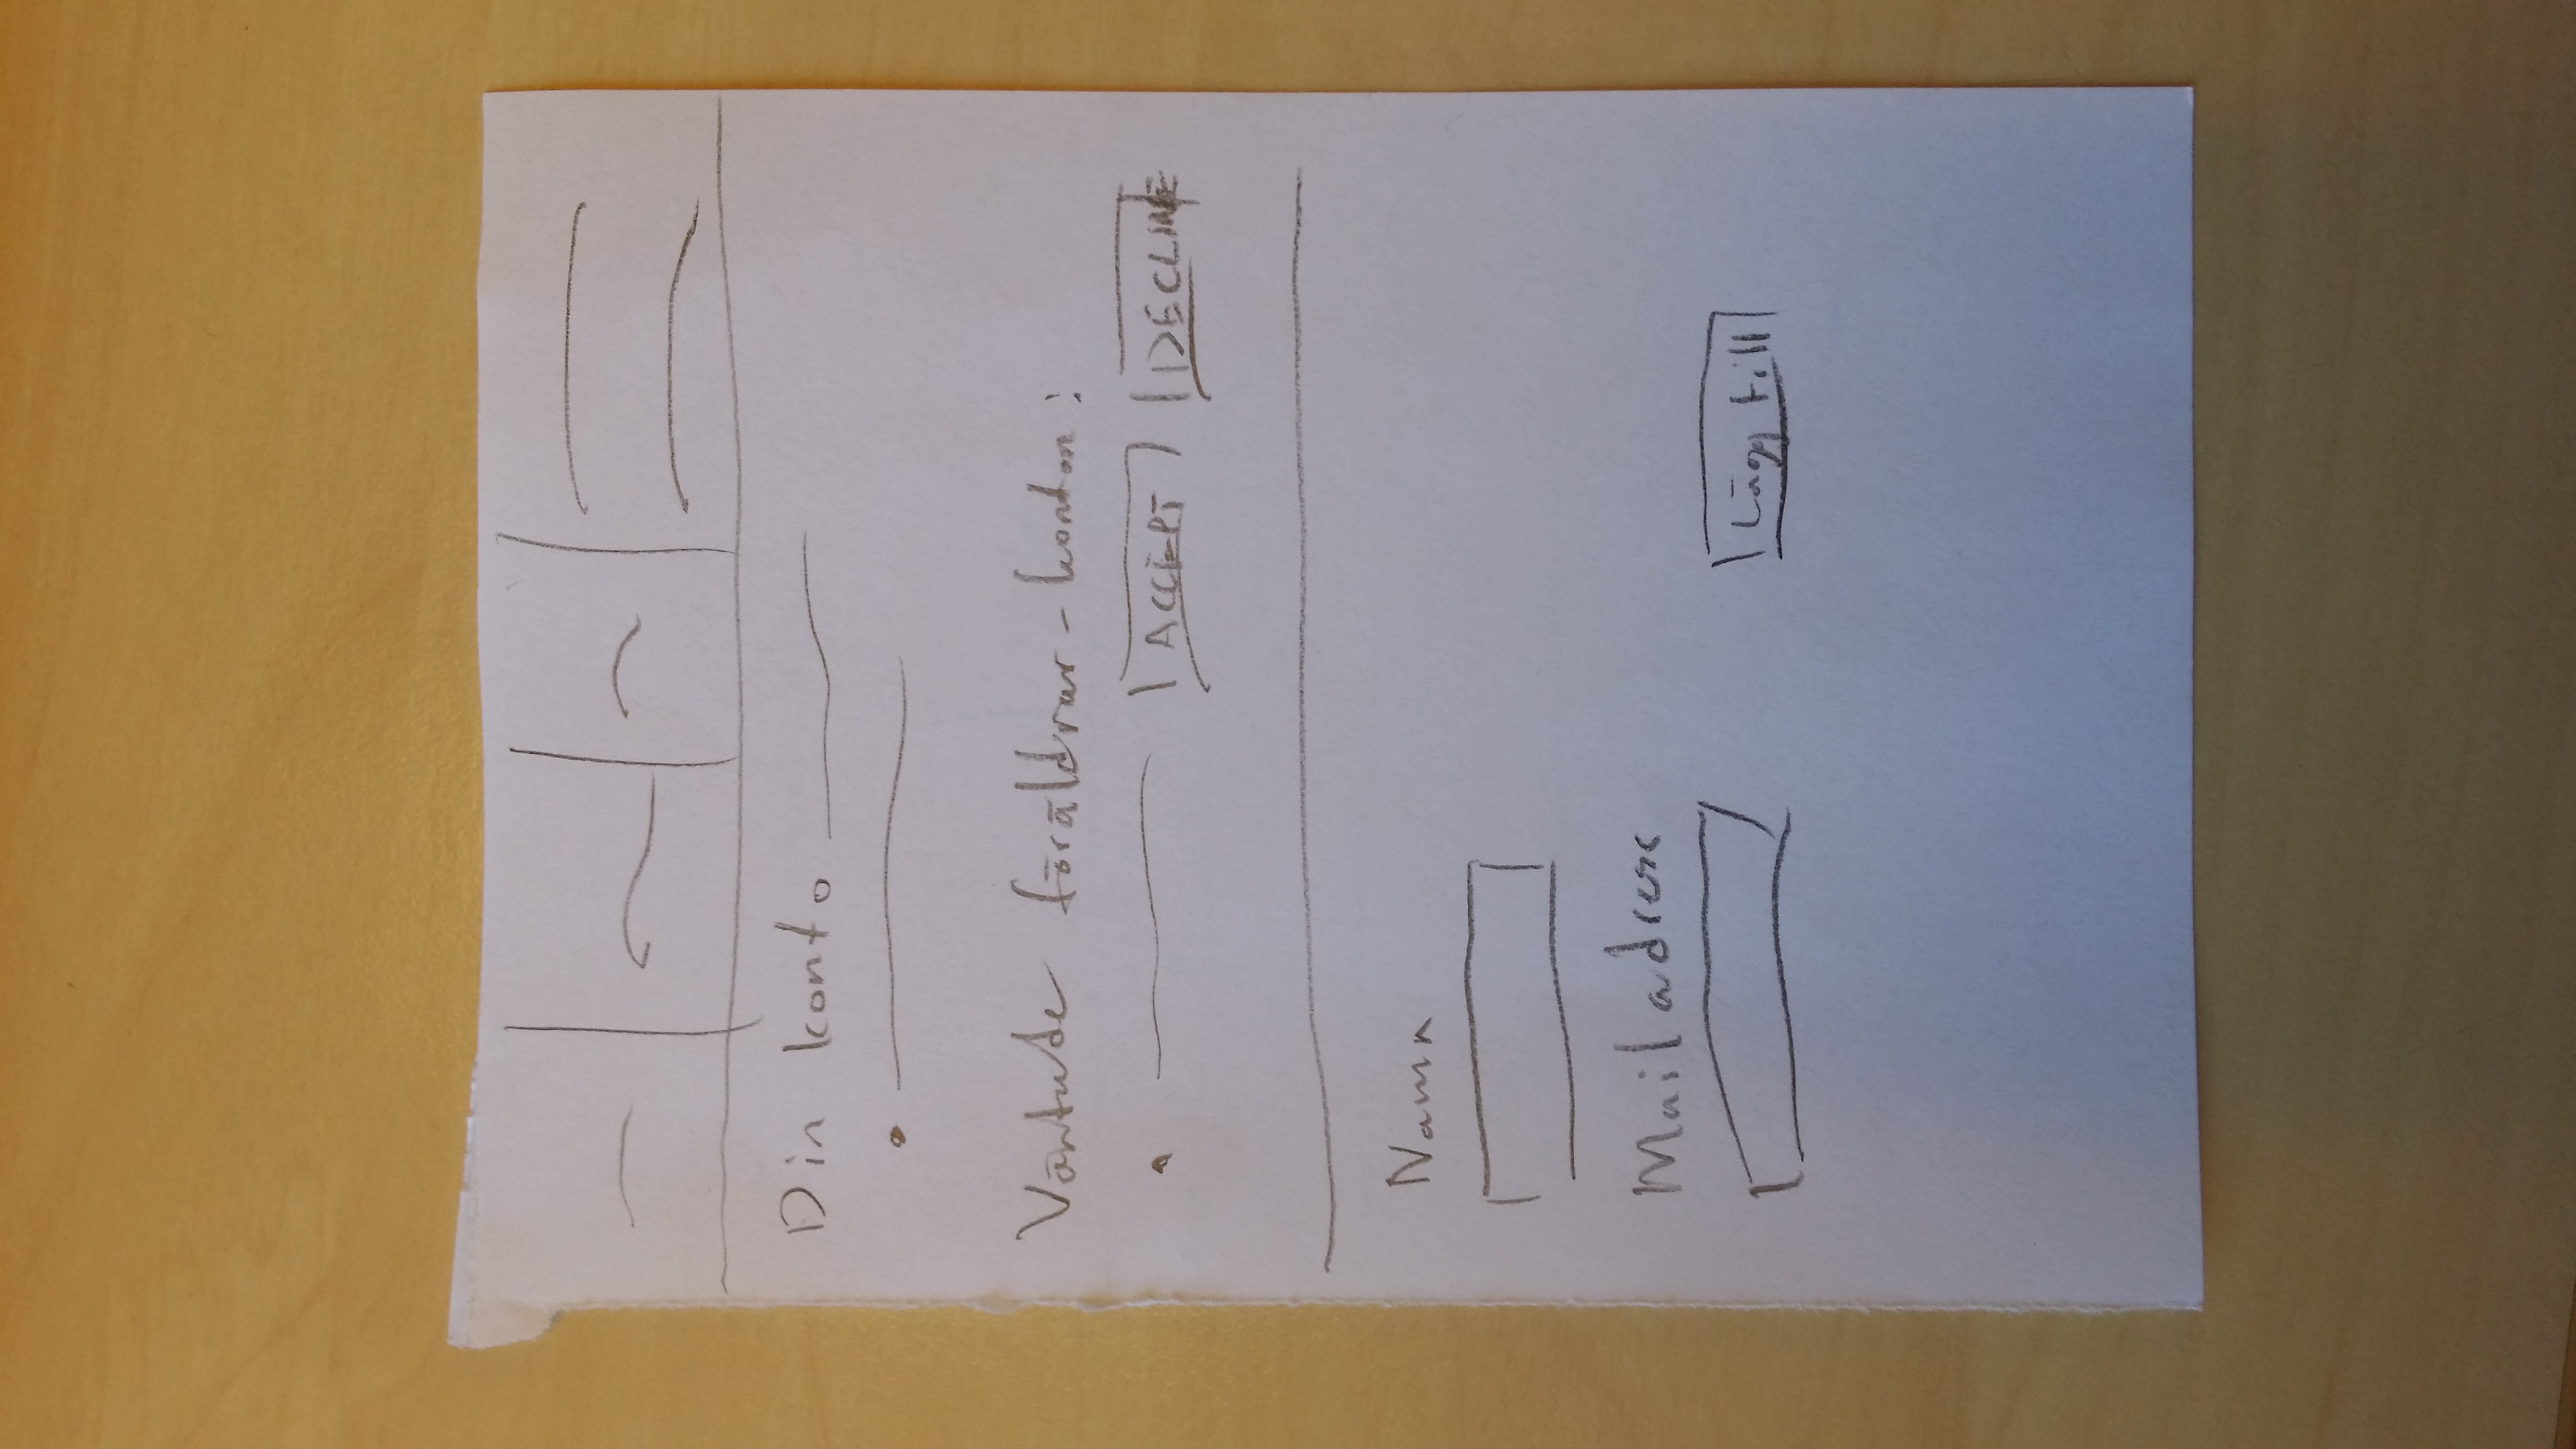 Din konto
Väntade föräldrar-konton:
ACCEPT DECLINE
Namn
Mailadress
Lägg till